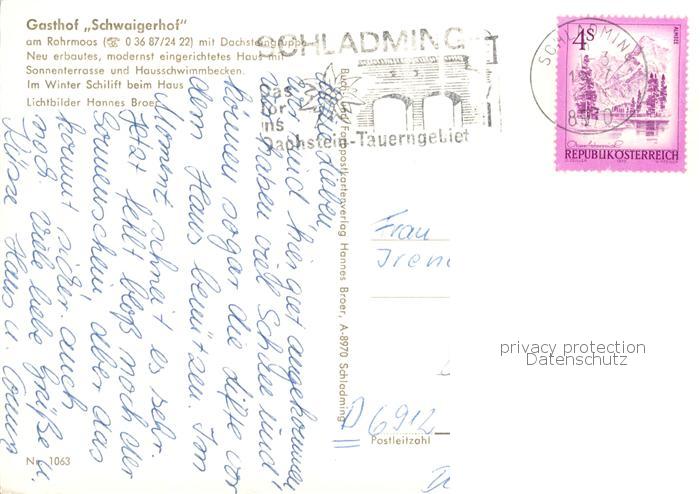 Gasthof „Schwaigerhof"
am Rohrmoos (☎ 0 36 87/24 22) mit Dachsteingruppe
Neu erbautes, modernst eingerichtetes Haus mit
Sonnenterrasse und Hausschwimmbecken.
Im Winter Schilift beim Haus
Lichtbilder Hannes Broer
SCHLADMING
das
Tor
ins
Dachstein-Tauerngebiet
SCHLADMING
8970
4S
ALMSEE
REPUBLIK ÖSTERREICH
Ihr Lieben,
wir sind hier gut angekommen,
wir haben viel Schnee und
können sogar die Lifte vor
dem Haus benützen. Im
Moment schneit es sehr.
Jetzt fehlt bloß noch der
Sonnenschein, aber das
kommt sicher auch
noch. Viele liebe Grüße u.
Küsse Hans u.
Buch- und Fotopostkartenverlag Hannes Broer, A-8970 Schladming
Frau
Iren
D 6912
Postleitzahl
privacy protection
Datenschutz
Nr. 1063